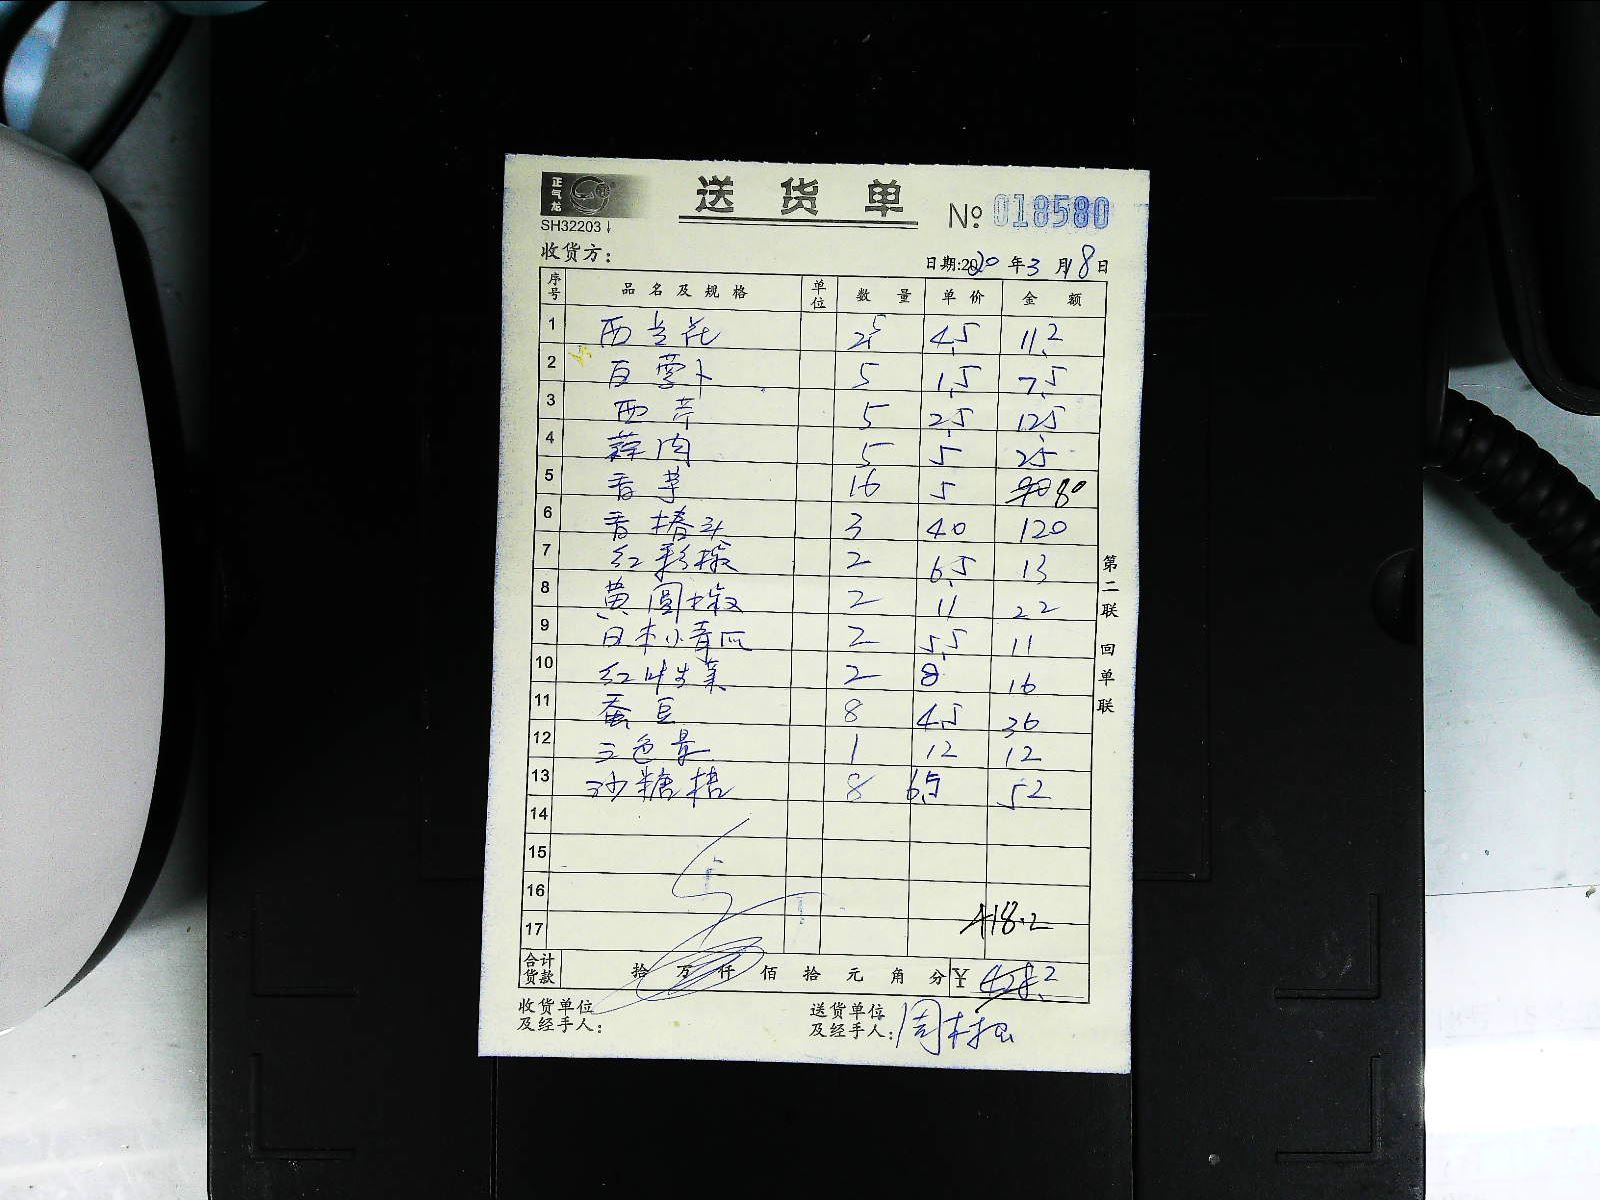 正气龙
送货单
SH32203
No 018580
收货方：
日期:2020年3月18日
序号 品名及规格 单位 数量 单价 金额
1 西兰花 2.5 4.5 11.2
2 白萝卜 5 1.5 7.5
3 西芹 5 2.5 12.5
4 蒜肉 5 5 25
5 香芋 16 5 80
6 香椿头 3 40 120
7 红彩椒 2 6.5 13
8 黄圆椒 2 11 22
9 日本小青瓜 2 5.5 11
10 红叶生菜 2 8 16
11 蚕豆 8 4.5 36
12 三色堇 1 12 12
13 沙糖桔 8 6.5 52
14
15
16
17 418.2
合计货款 拾万仟佰拾元角分 ¥ 428.2
收货单位及经手人：
送货单位及经手人：周
第二联 回单联